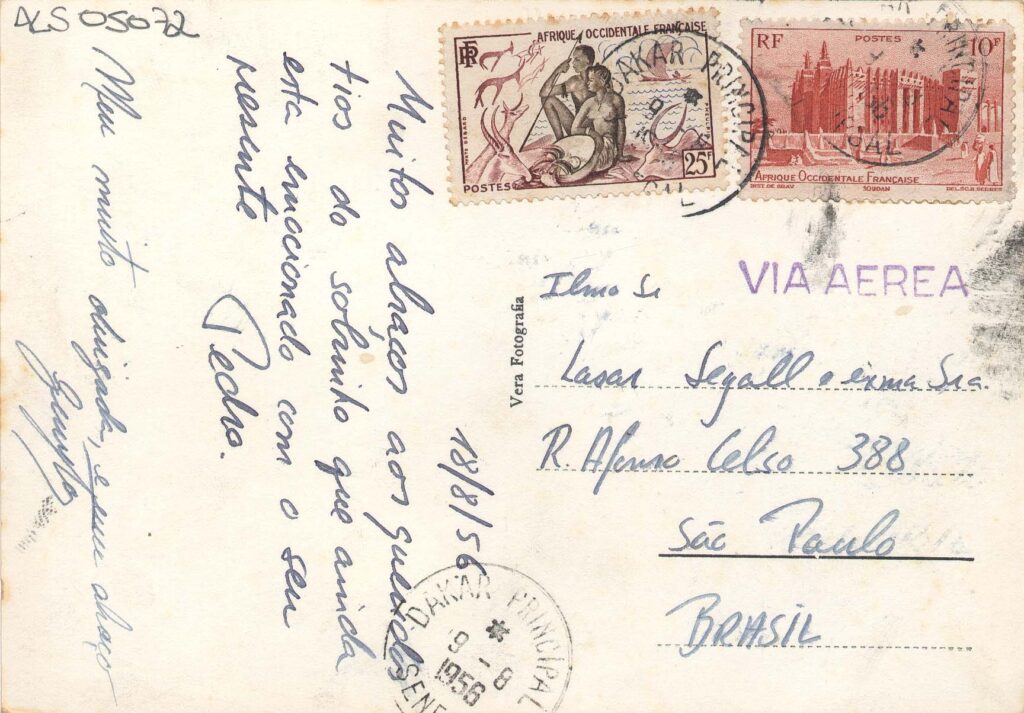 ALS 05072
18/8/56
Muitos abraços aos queridos
tios do sobrinho que ainda
esta emocionado com o seu
presente
Pedro.
Meu muito obrigada, e um abraço
RF
AFRIQUE OCCIDENTALE FRANÇAISE
POSTES
25F
RF
POSTES
10F
AFRIQUE OCCIDENTALE FRANÇAISE
SOUDAN
DAKAR PRINCIPAL
VIA AEREA
Vera Fotografia
Ilmo Sr
Lasar Segall e exma Sra.
R. Afonso Celso 388
São Paulo
BRASIL
DAKAR PRINCIPAL
9 - 8
1956
SENE